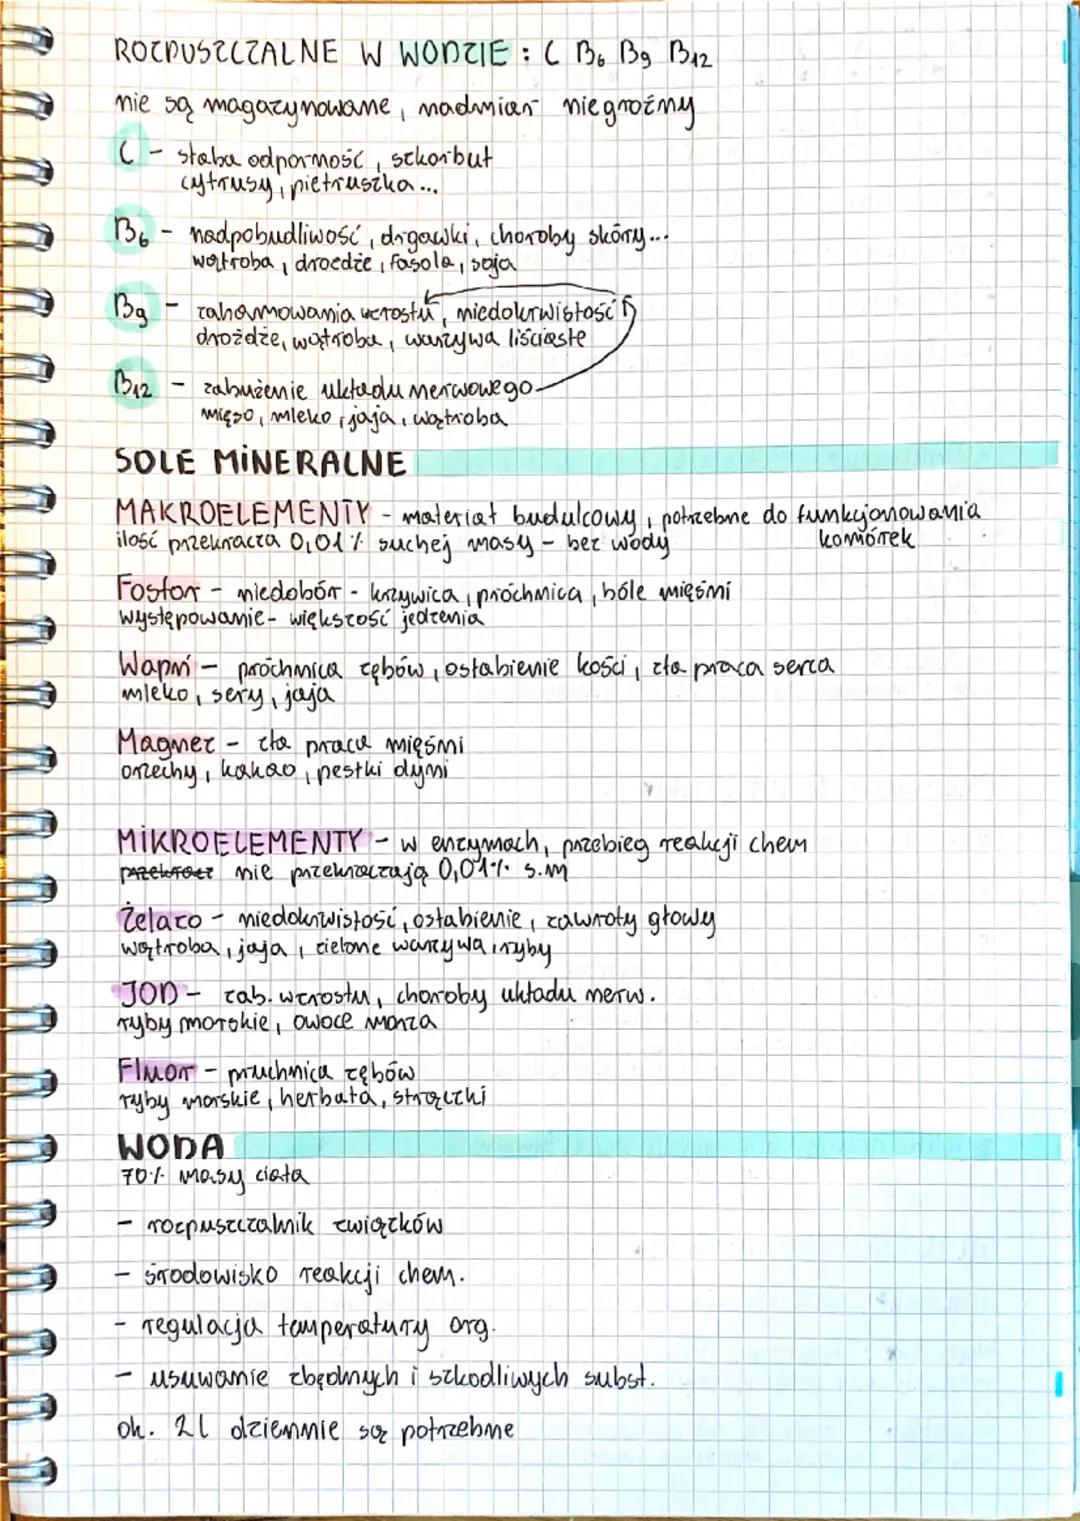 ROZPUSZCZALNE W WODZIE : C B6 B9 B12
nie są magazynowane, nadmiar niegroźny
C - słaba odporność, szkorbut
cytrusy, pietruszka...
B6 - nadpobudliwość, drgawki, choroby skóry...
wątroba, drożdże, fasola, soja
B9 - zahamowania wzrostu, niedokrwistość
drożdże, wątroba, warzywa liściaste
B12 - zabużenie układu nerwowego
mięso, mleko, jaja, wątroba
SOLE MINERALNE
MAKROELEMENTY - materiał budulcowy, potrzebne do funkcjonowania
ilość przekracza 0,01% suchej masy - bez wody komórek
Fosfor - niedobór - krzywica, próchnica, bóle mięśni
występowanie - większość jedzenia
Wapń - próchnica zębów, osłabienie kości, zła praca serca
mleko, sery, jaja
Magnez - zła praca mięśni
orzechy, kakao, pestki dyni
MIKROELEMENTY - w enzymach, przebieg reakcji chem
nie przekraczają 0,01% s.m
Żelazo - niedokrwistość, osłabienie, zawroty głowy
wątroba, jaja, zielone warzywa, ryby
JOD - zab. wzrostu, choroby układu nerw.
ryby morskie, owoce morza
Fluor - pruchnica zębów
ryby morskie, herbata, strączki
WODA
70% masy ciała
- rozpuszczalnik związków
- środowisko reakcji chem.
- regulacja temperatury org.
- usuwanie zbędnych i szkodliwych subst.
ok. 2l dziennie są potrzebne